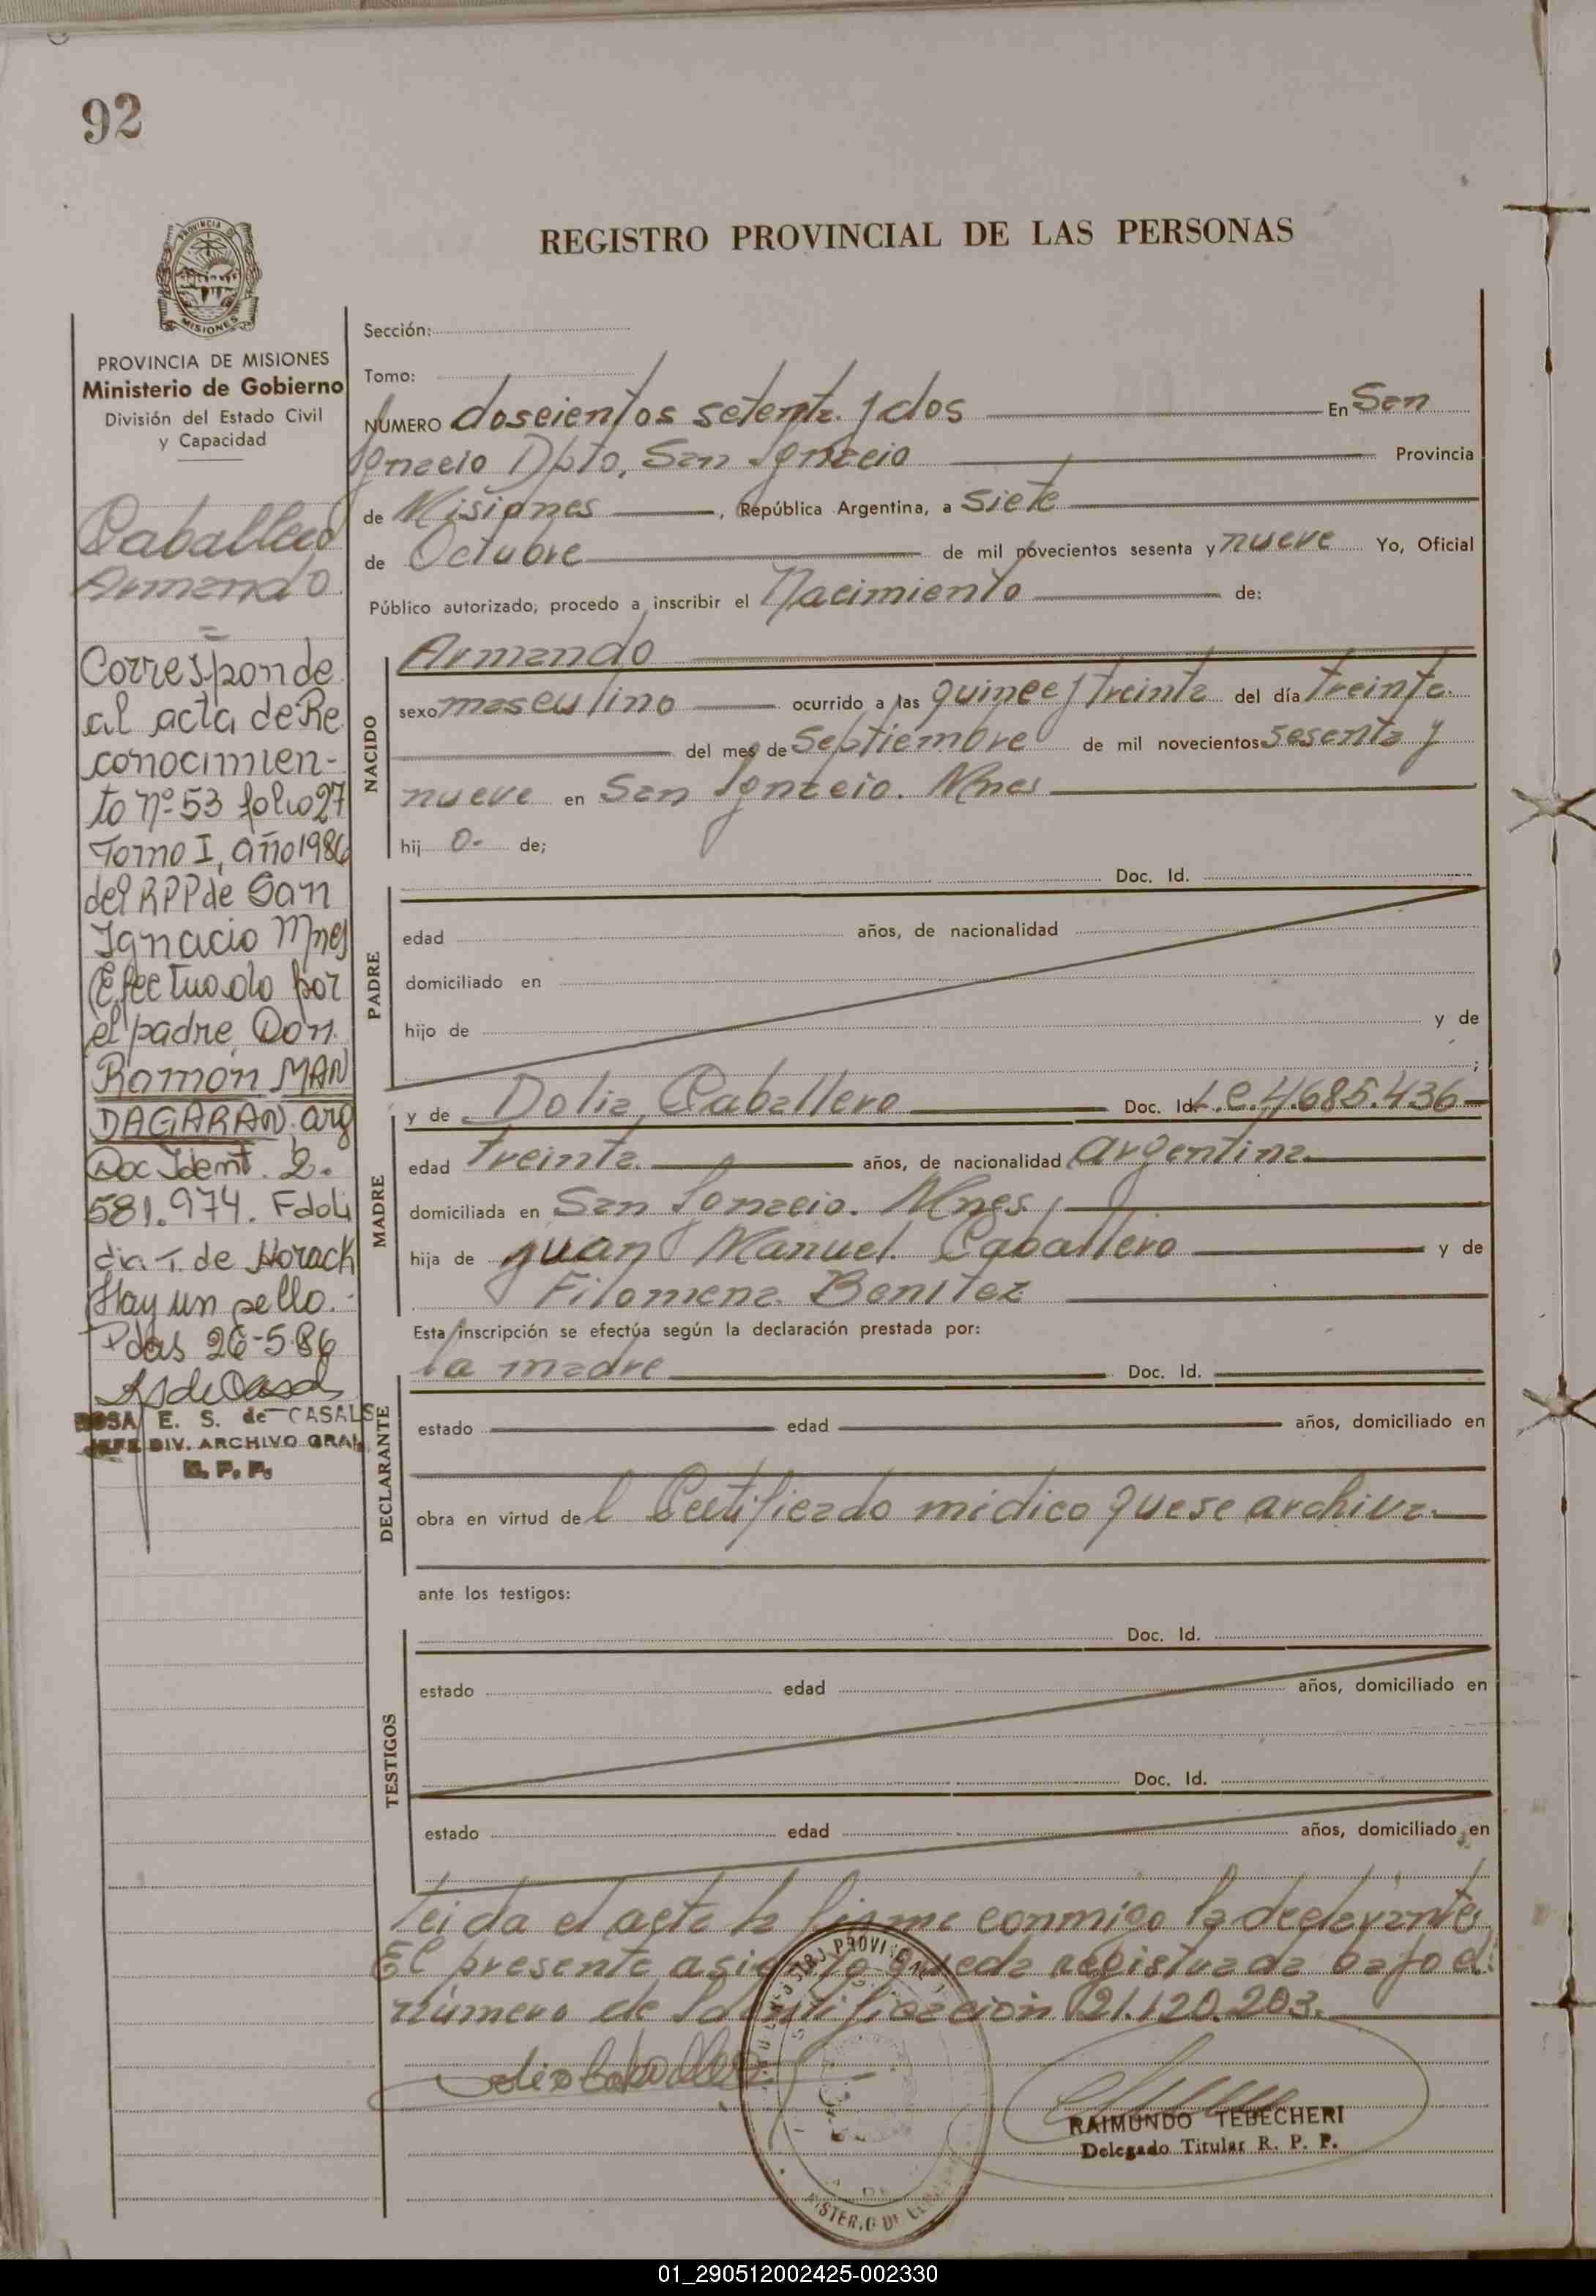 92
REGISTRO PROVINCIAL DE LAS PERSONAS
PROVINCIA DE MISIONES
Ministerio de Gobierno
División del Estado Civil
y Capacidad
Caballero
Armando
=
Corresponde
al acta de Re
conocimien-
to nº 53 folio 27
Tomo I, año 1986
del RPP de San
Ignacio Mnes
Efectuado por
el padre Don.
Ramón MAN
DAGARAN. arg
Doc Ident. 2.
581.974. Fdo
T. de Horack
Hay un sello.-
Pdas 26-5-86
ROSA E. S. de CASALS
JEFE DIV. ARCHIVO GRAL
R. P. P.
Sección:
Tomo:
NUMERO doscientos setenta y dos En San
Ignacio Dpto, San Ignacio Provincia
de Misiones, República Argentina, a siete
de Octubre de mil novecientos sesenta y nueve Yo, Oficial
Público autorizado, procedo a inscribir el Nacimiento de:
NACIDO
Armando
sexo masculino ocurrido a las quince y treinta del día treinta
del mes de Septiembre de mil novecientos sesenta y
nueve en San Ignacio. Mnes
hij o. de;
PADRE
Doc. Id.
edad años, de nacionalidad
domiciliado en
hijo de y de
;
MADRE
y de Dolia Caballero Doc. Id. L.C. 4.685.436
edad treinta años, de nacionalidad argentina
domiciliada en San Ignacio. Mnes.
hija de Juan Manuel Caballero y de
Filomena Benitez
Esta inscripción se efectúa según la declaración prestada por:
DECLARANTE
la madre Doc. Id.
estado edad años, domiciliado en
obra en virtud de l Certificado médico que se archiva.
ante los testigos:
TESTIGOS
Doc. Id.
estado edad años, domiciliado en
Doc. Id.
estado edad años, domiciliado en
Leida el acta la firma conmigo la declarante.
El presente asiento queda registrada bajo el
número de Identificación 21.120.203.
Delia Caballero
RAIMUNDO TEBECHERI
Delegado Titular R. P. P.
01_290512002425-002330